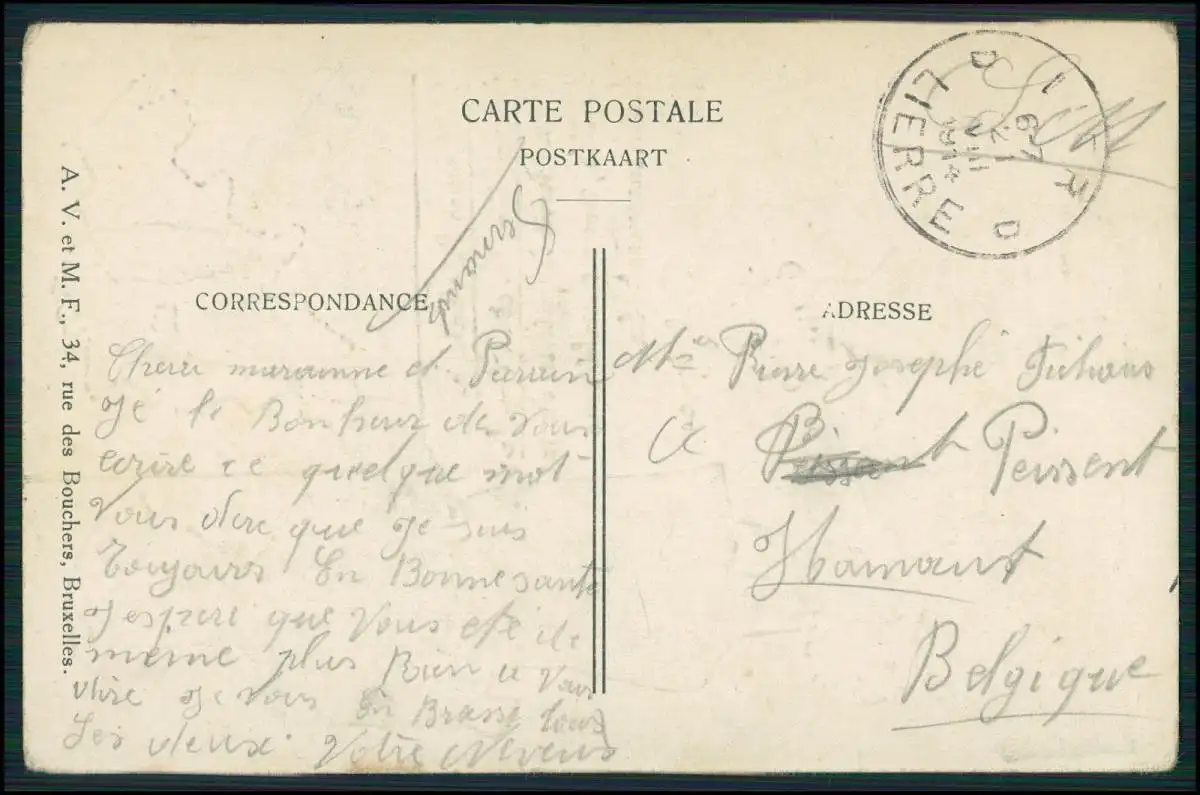 CARTE POSTALE
POSTKAART
LIER
D
LIERRE
D
6-7
21
VIII
1914
S.M
A. V. et M. F., 34, rue des Bouchers, Bruxelles.
CORRESPONDANCE
ADRESSE
Cherre marainne et Parain
Jé le Bonheur de vous
ecrire ce quelque mot
Vous dire que je suis
Toujours En Bonne santé
J'espere que Vous ete de
même plus Rien a Vous
dire je vous En Brasse tous
les deux Votre Neveus
Pierre Josephe
a Peissent
Hamaut
Belgique